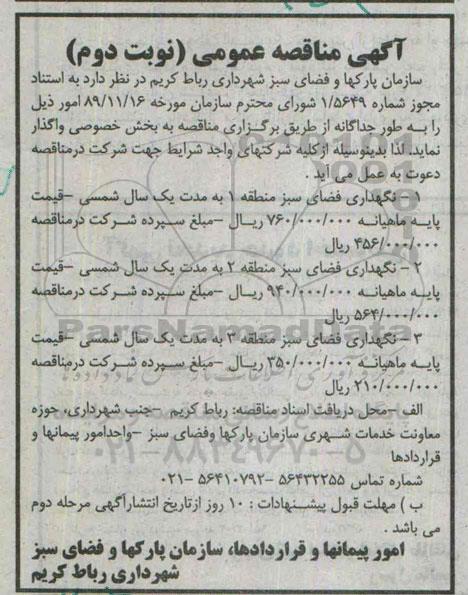 آگهی مناقصه عمومی (نوبت دوم)
سازمان پارکها و فضای سبز شهرداری رباط کریم در نظر دارد به استناد
مجوز شماره ۱/۵۶۴۹ شورای محترم سازمان مورخه ۸۹/۱۱/۱۶ امور ذیل
را به طور جداگانه از طریق برگزاری مناقصه به بخش خصوصی واگذار
نماید. لذا بدینوسیله ازکلیه شرکتهای واجد شرایط جهت شرکت درمناقصه
دعوت به عمل می آید .
۱ – نگهداری فضای سبز منطقه ۱ به مدت یک سال شمسی –قیمت
پایه ماهیانه ۷۶۰/۰۰۰/۰۰۰ ریال –مبلغ سپرده شرکت درمناقصه
۴۵۶/۰۰۰/۰۰۰ ریال
۲ – نگهداری فضای سبز منطقه ۲ به مدت یک سال شمسی –قیمت
پایه ماهیانه ۹۴۰/۰۰۰/۰۰۰ ریال –مبلغ سپرده شرکت درمناقصه
۵۶۴/۰۰۰/۰۰۰ ریال
۳ – نگهداری فضای سبز منطقه ۳ به مدت یک سال شمسی –قیمت
پایه ماهیانه ۳۵۰/۰۰۰/۰۰۰ ریال –مبلغ سپرده شرکت درمناقصه
۲۱۰/۰۰۰/۰۰۰ ریال
الف –محل دریافت اسناد مناقصه: رباط کریم –جنب شهرداری، حوزه
معاونت خدمات شهری سازمان پارکها وفضای سبز –واحدامور پیمانها و
قراردادها
شماره تماس ۵۶۴۳۲۲۵۵ –۵۶۴۱۰۷۹۲ –۰۲۱
ب ) مهلت قبول پیشنهادات : ۱۰ روز ازتاریخ انتشارآگهی مرحله دوم
می باشد .
امور پیمانها و قراردادها، سازمان پارکها و فضای سبز
شهرداری رباط کریم
ParsNamadData
۰۲۱-۸۸۳۴۹۶۷۰-۵